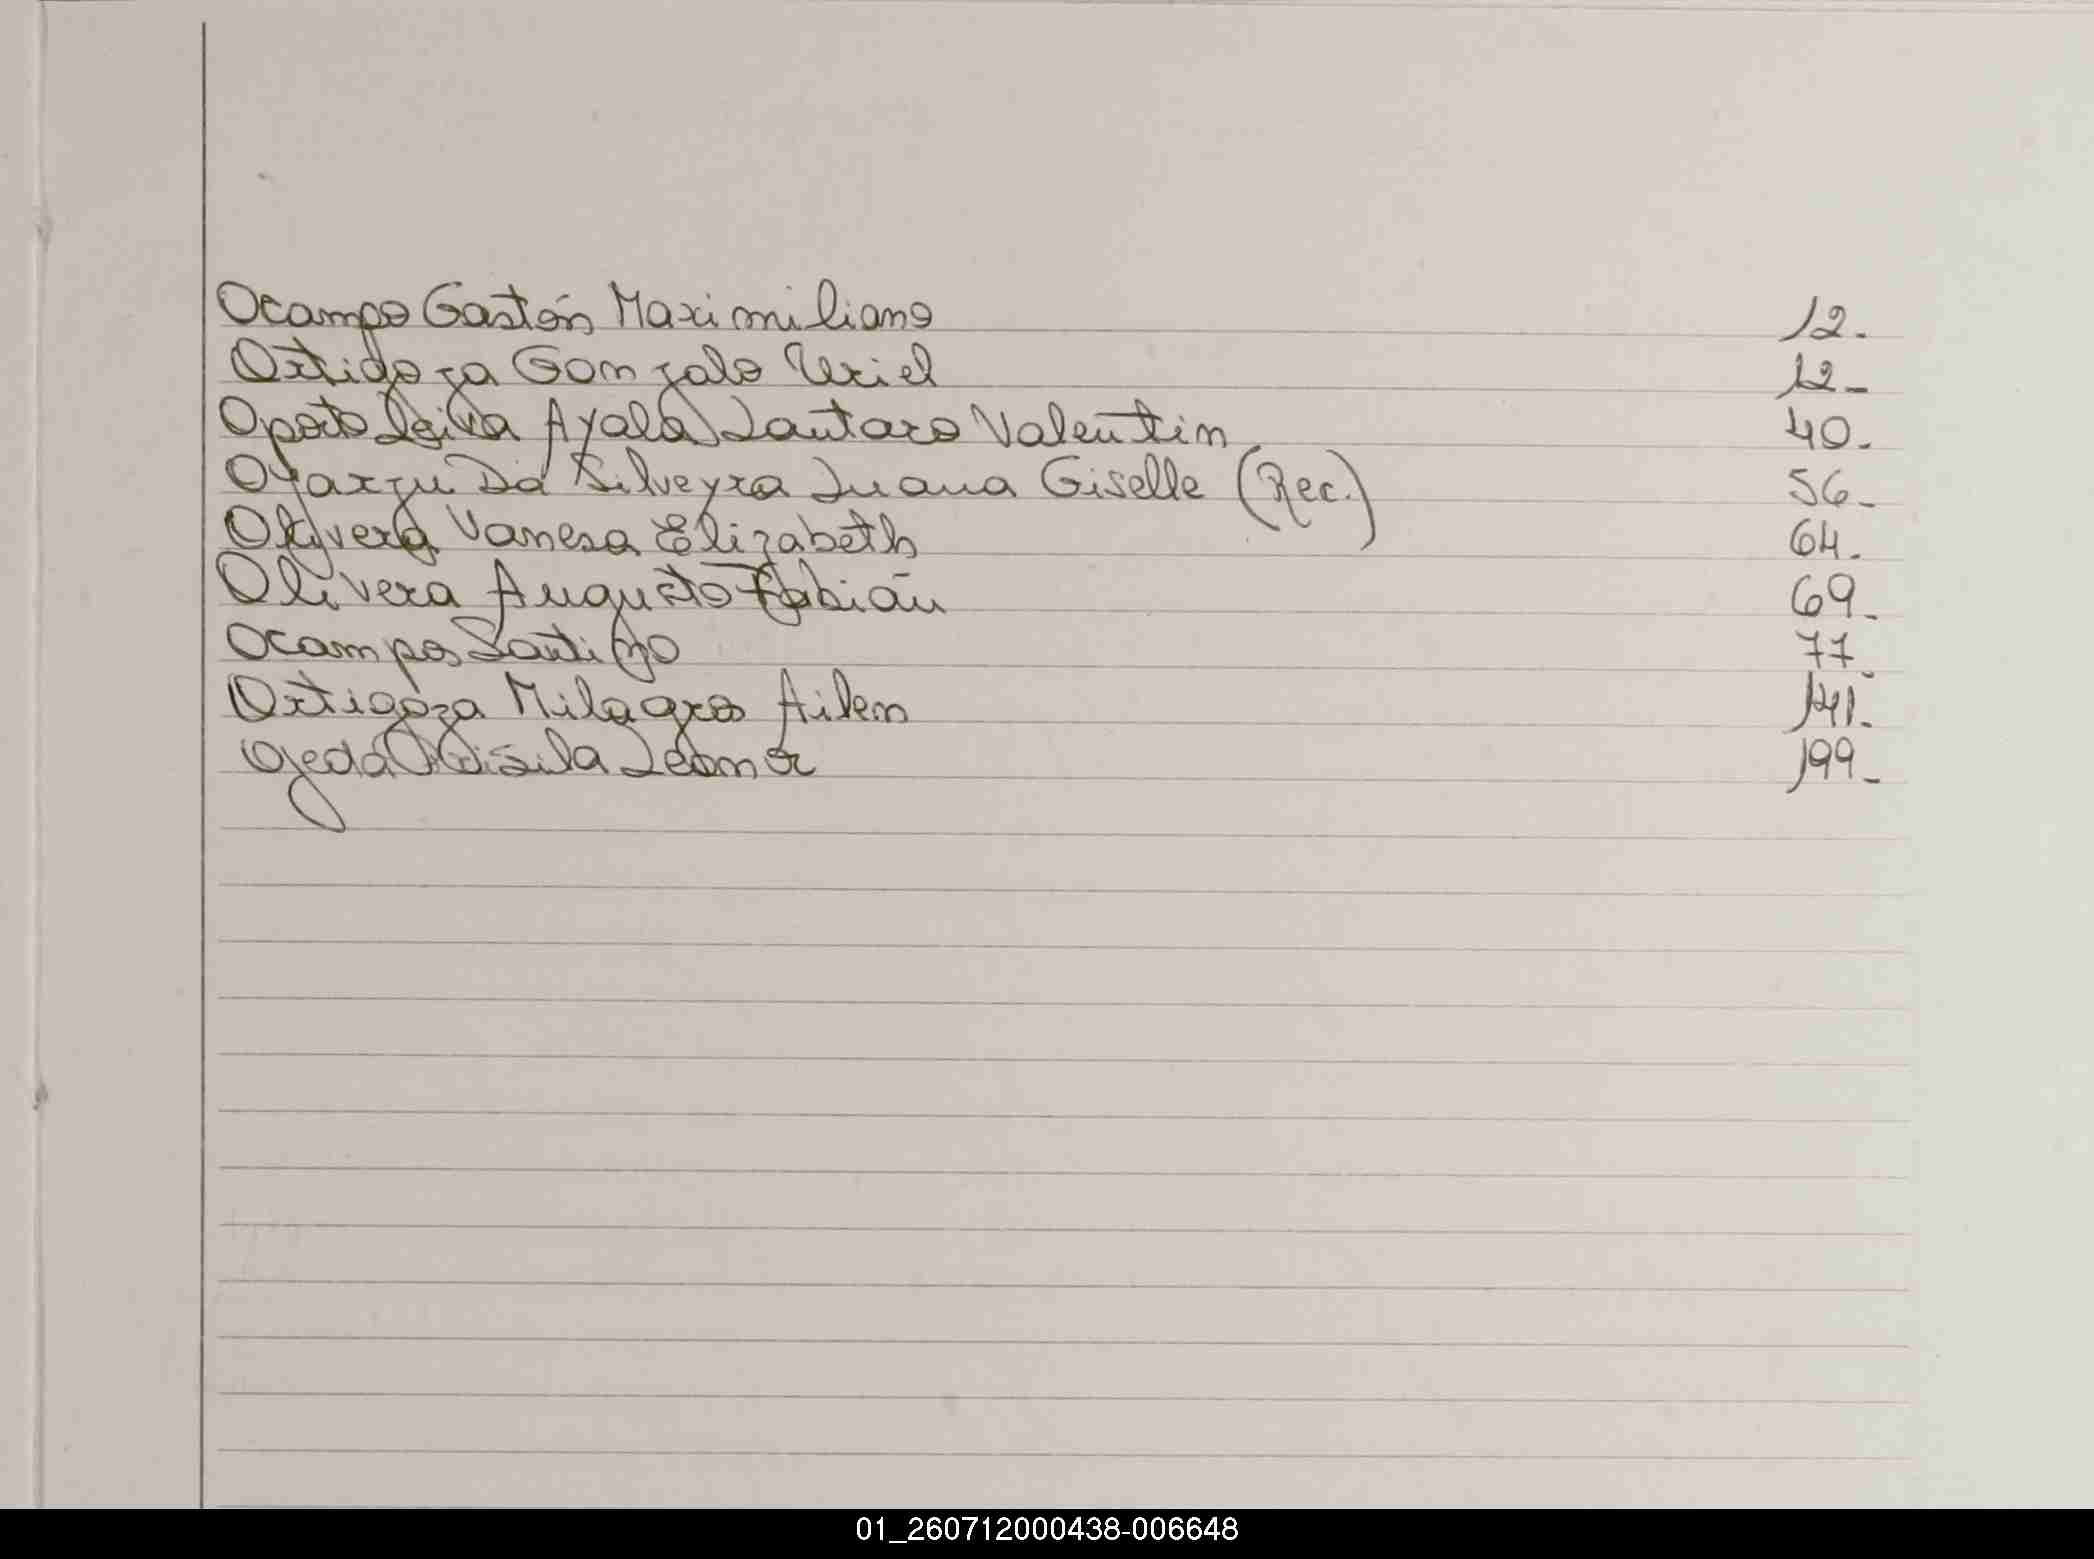 Ocampo Gastón Maximiliano 12.
Ortigoza Gonzalo Uriel 12-
Oporto Leiva Ayala Lautaro Valentin 40.
Oyarzu Da Silveyra Juana Giselle (Rec.) 56-
Olivera Vanesa Elizabeth 64.
Olivera Augusto Fabián 69-
Ocampos 77
Ortigoza Milagros Ailen 141.
Ojeda Leonor 199-
01_260712000438-006648